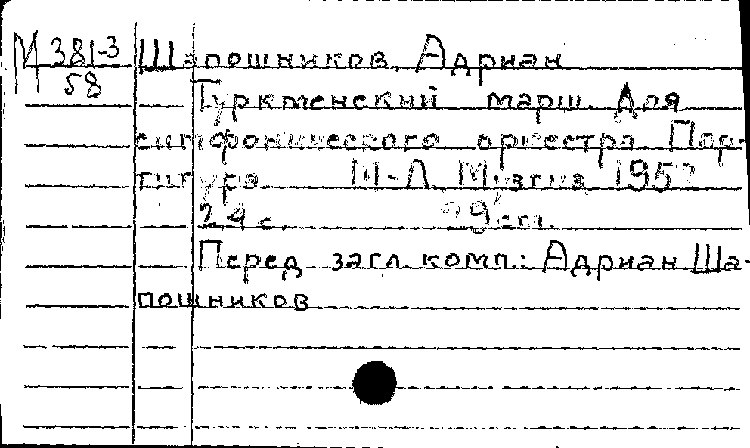 М 381-3 Шапошников, Адриан
58 Туркменский марш. Для
симфонического оркестра. Пар-
титура. М-Л. Музгиз
24 с. 29 см.
Перед загл. комп.: Адриан Ша-
пошников